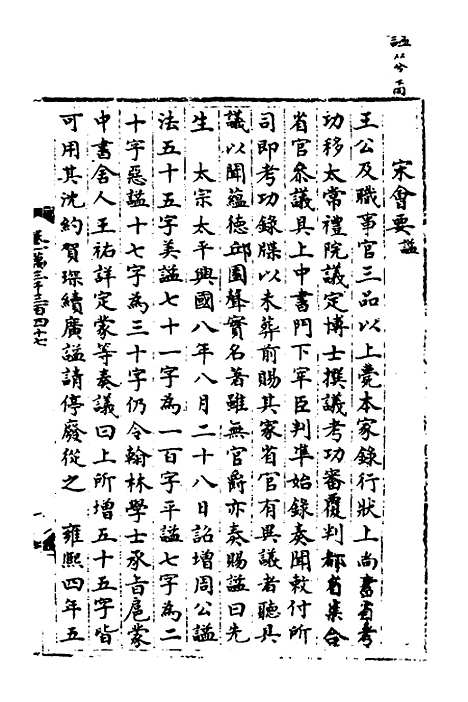 宋會要謚
王公及職事官三品以上薨本家錄行狀上尚書省考
功移太常禮院議定博士撰議考功審覆判都省集合
省官參議具上中書門下宰臣判準始錄奏聞敕付所
司即考功錄牒以未葬前賜其家省官有異議者聽具
議以聞蘊德邱園聲實名著雖無官爵亦奏賜謚曰先
生　太宗太平興國八年八月二十八日詔增周公謚
法五十五字美謚七十一字為一百字平謚七字為二
十字惡謚十七字為三十字仍令翰林學士承旨扈蒙
中書舍人王祐詳定蒙等奏議曰上所增五十五字皆
可用其沈約賀琛續廣謚請停廢從之　雍熙四年五
卷一萬三千三百四十七
一